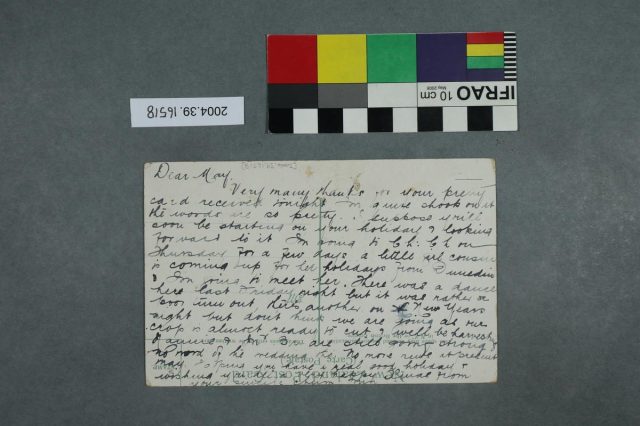 2004.39.16518
IFRAO 10 cm
Dear May.
Very many thanks for your pretty
card received tonight I'm quite shook on it
the words are so pretty. I suppose you'll
soon be starting on your holiday & looking
forward to it I'm going to Ch: Ch on
Thursday for a few days a little girl cousin
is coming up for her holidays from Dunedin
I'm going to meet her. There was a dance
here last Friday night but it was rather a
poor turn out there's another on New Years
night but dont think we are going as our
crop is almost ready to cut & will be harvest
are still going strong
no word of the wedding No more news at present
May. Hoping you have a real good holiday &
wishing you a Happy from
your